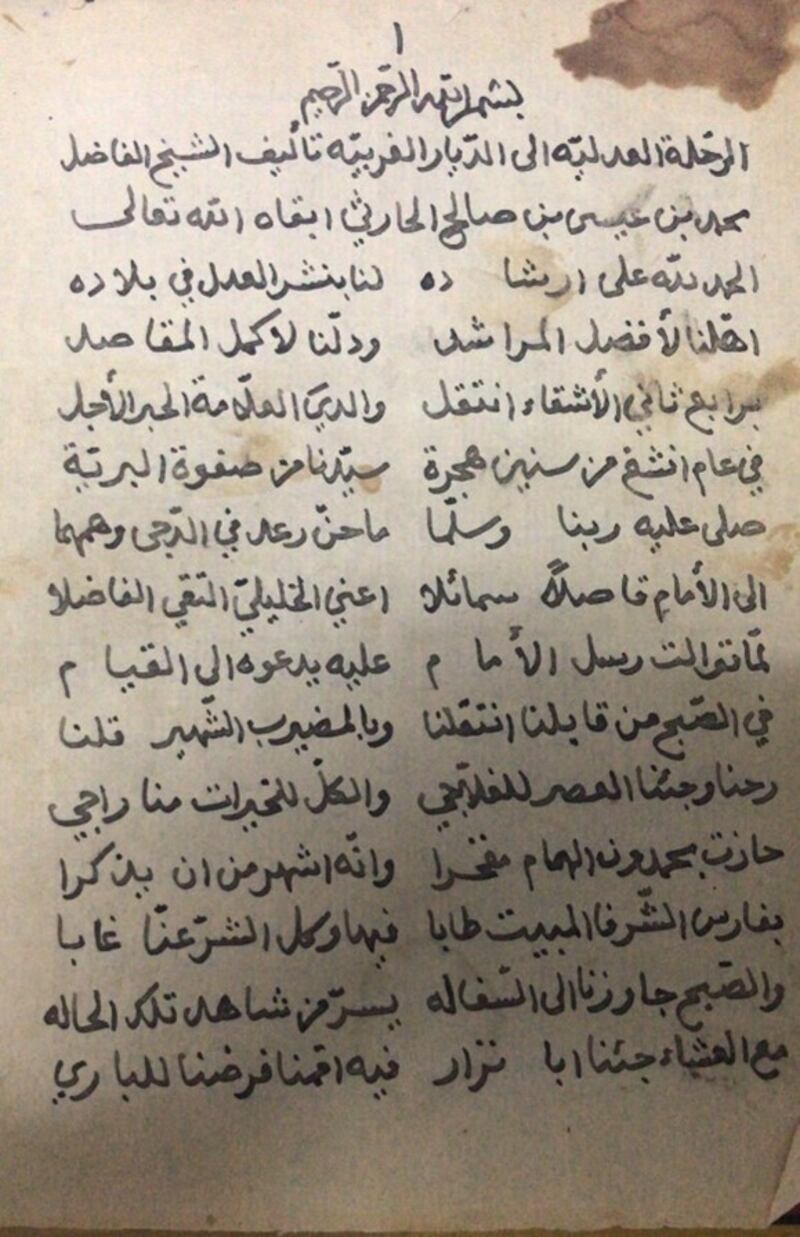 ١
بسم الله الرحمن الرحيم
الرّحلة العدليّه الى الدّيار الغربيّه تأليف الشيخ الفاضل
محمد بن عيسى بن صالح الحارثي ابقاه الله تعالى
الحمد لله على ارشا ده لنا بنشر العدل في بلاده
اهّلنا لأفضل المراشد ودلّنا لاكمل المقاصد
برابع ثاني الأشقاء انتقل والدي العلّامة الحبر الأجل
في عام من سنين هجرة سيّدنا من صفوة البريّة
صلى عليه ربنا وسلّما ما حنّ رعد في الدّجى وهمهما
الى الأمام قاصداً سمائلا اعني الخليليّ التّقي الفاضلا
لمّا توالت رسل الأ ما م عليه يدعوه الى القيا م
في الصّبح من قابلنا انتقلنا وبالمضيرب الشّهير قلنا
رحنا وجئنا العصر للفلّيجي والكلّ للخيرات منا راجي
حازت بحمدون الهمام مفخرا وانّه اشهر من ان يذكرا
بفارس الشّرفا المبيت طابا فيها وكل الشرّ عنّا غابا
والصّبح جاوزنا الى السّفاله يسرّ من شاهد تلك الحاله
مع العشاء جئنا ابا نزار فيه اقمنا فرضنا للباري